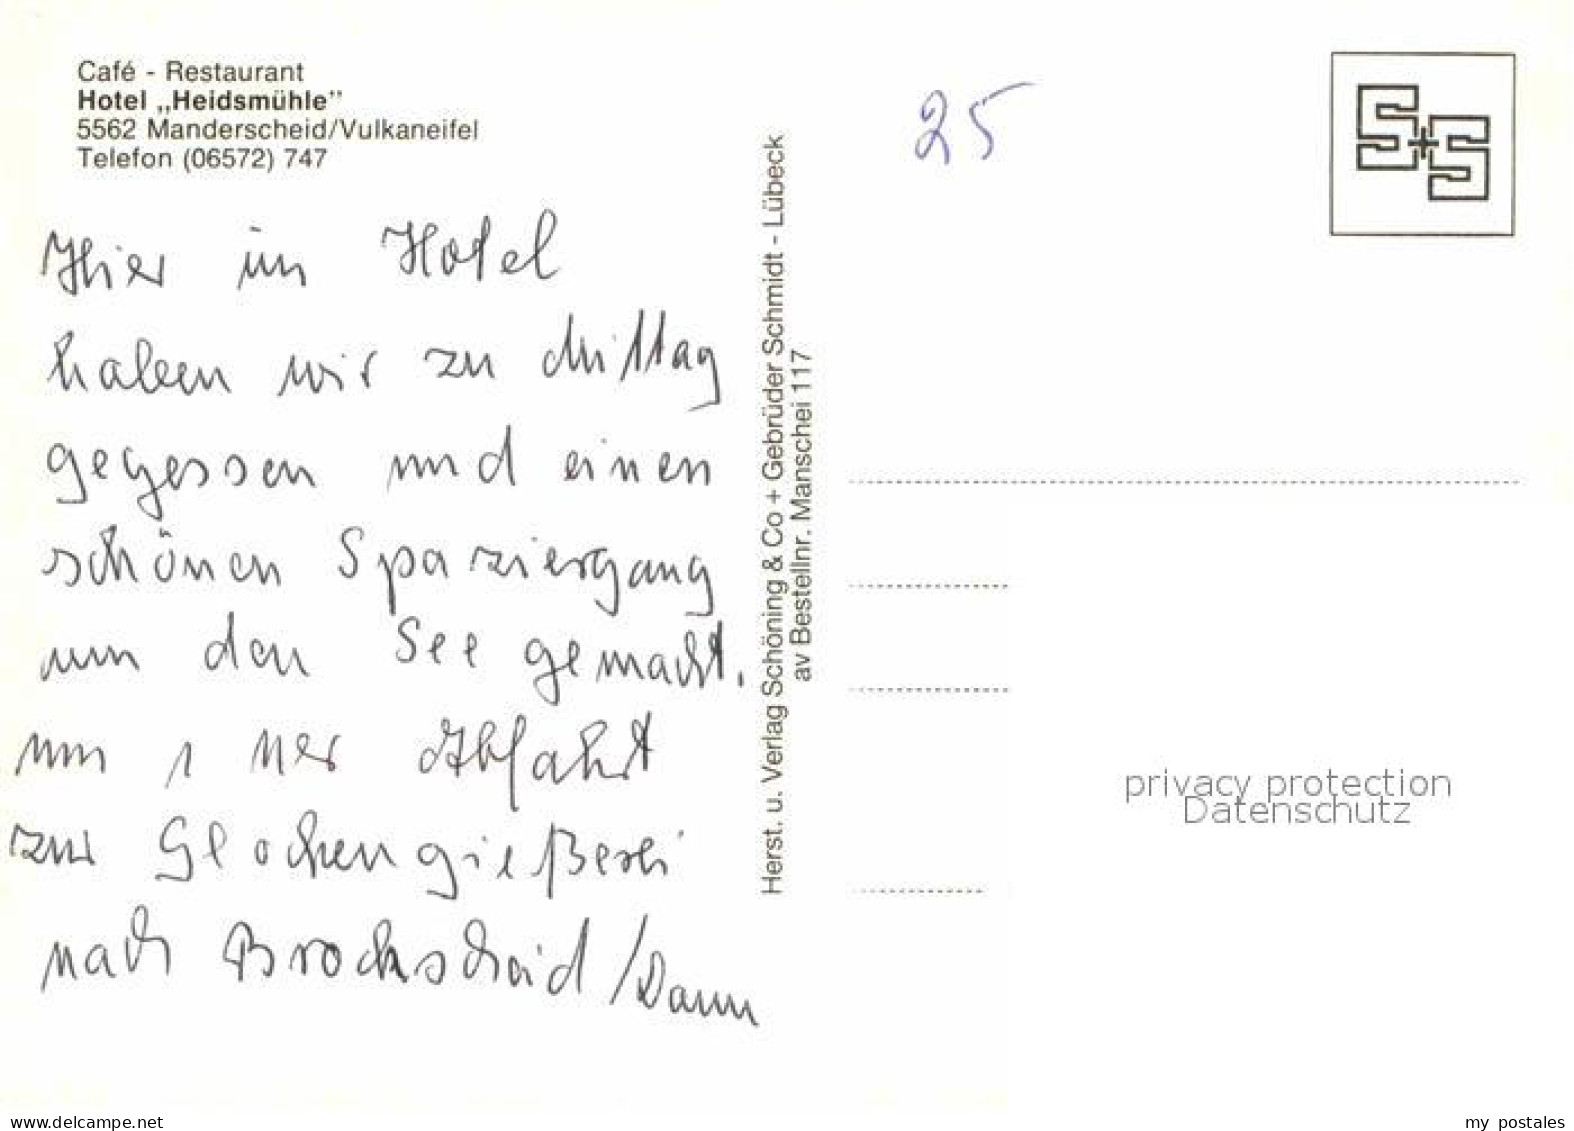 Café - Restaurant
Hotel „Heidsmühle”
5562 Manderscheid/Vulkaneifel
Telefon (06572) 747
Hier im Hotel
haben wir zu Mittag
gegessen und einen
schönen Spaziergang
um den See gemacht.
um 1 Uhr Abfahrt
zur Glockengießerei
nach Brockscheid/Daun
Herst. u. Verlag Schöning & Co + Gebrüder Schmidt - Lübeck
av Bestellnr. Manschei 117
25
S+S
privacy protection
Datenschutz
delcampe.net
my_postales